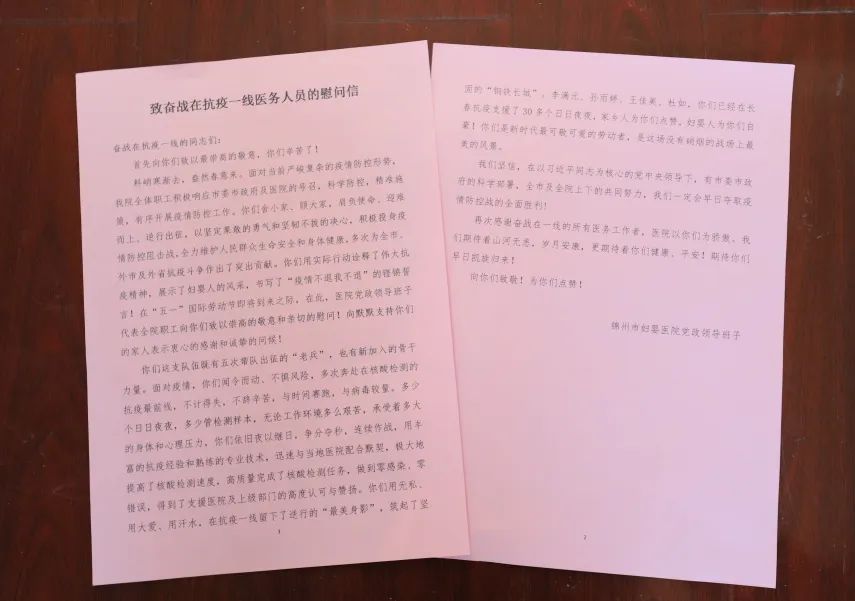 致奋战在抗疫一线医务人员的慰问信
奋战在抗疫一线的同志们：
首先向你们致以最崇高的敬意，你们辛苦了！
料峭寒渐去，盎然春意来。面对当前严峻复杂的疫情防控形势，
我院全体职工积极响应市委市政府及医院的号召，科学防控，精准施
策，有序开展疫情防控工作。你们舍小家、顾大家，肩负使命、迎难
而上、逆行出征，以坚定果敢的勇气和坚韧不拔的决心，积极投身疫
情防控阻击战，全力维护人民群众生命安全和身体健康，多次为全市、
外市及外省抗疫斗争作出了突出贡献。你们用实际行动诠释了伟大抗
疫精神，展示了妇婴人的风采，书写了“疫情不退我不退”的铿锵誓
言！在“五一”国际劳动节即将到来之际，在此，医院党政领导班子
代表全院职工向你们致以崇高的敬意和亲切的慰问！向默默支持你们
的家人表示衷心的感谢和诚挚的问候！
你们这支队伍既有五次缨队出征的“老兵”，也有新加入的骨干
力量。面对疫情，你们闻令而动、不惧风险，多次奔赴在核酸检测的
抗疫最前线，不计得失，不辞辛苦，与时间赛跑，与病毒较量。多少
个日日夜夜，多少管检测样本，无论工作环境多么艰苦，承受着多大
的身体和心理压力，你们依旧夜以继日，争分夺秒，连续作战，用丰
富的抗疫经验和熟练的专业技术，迅速与当地医院配合默契，极大地
提高了核酸检测速度，高质量完成了核酸检测任务，做到零感染、零
错误，得到了支援医院及上级部门的高度认可与赞扬。你们用无私、
用大爱、用汗水，在抗疫一线留下了逆行的“最美身影”，筑起了坚
1
面的“钢铁长城”。李满元、孙雨婷、王佳美、杜如，你们已经在长
春抗疫支援了30多个日日夜夜，家乡人为你们点赞，妇婴人为你们自
豪！你们是新时代最可敬可爱的劳动者，是这场没有硝烟的战场上最
美的风景。
我们坚信，在以习近平同志为核心的党中央领导下，有市委市政
府的科学部署，全市及全院上下的共同努力，我们一定会早日夺取疫
情防控战的全面胜利！
再次感谢奋战在一线的所有医务工作者，医院以你们为骄傲。我
们期待着山河无恙，岁月安康，更期待着你们健康、平安！期待你们
早日凯旋归来！
向你们致敬！为你们点赞！
锦州市妇婴医院党政领导班子
2